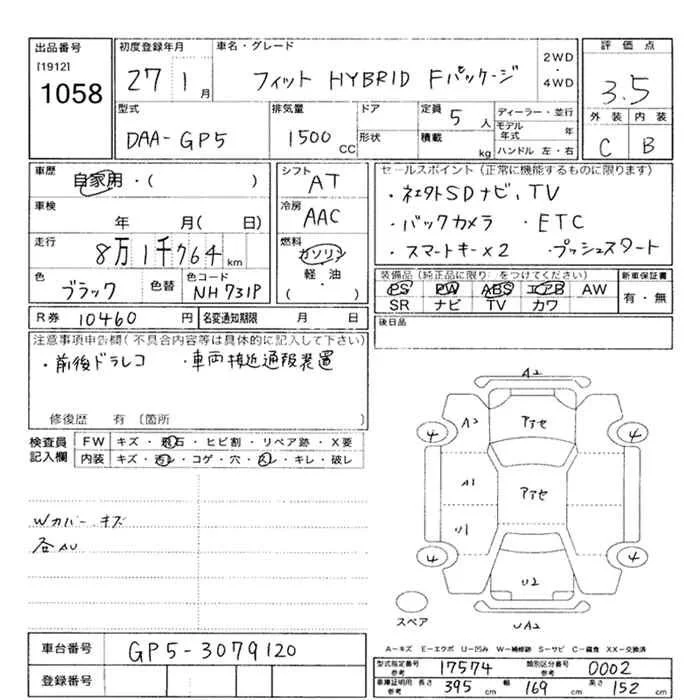 出品番号
[1912]
1058
初度登録年月
27 1月
車名・グレード
フィット HYBRID Fパッケージ
2WD
・
4WD
評価点
3.5
外装 内装
C B
型式
DAA-GP5
排気量
1500 CC
ドア
形状
定員 5人
積載 kg
ディーラー・並行
モデル年式 年
ハンドル 左・右
車歴
自家用・( )
車検
年 月( 日)
走行
8万1千764 km
色
ブラック
色替
色コード
NH731P
シフト
AT
冷房
AAC
燃料
ガソリン
軽・油
( )
セールスポイント(正常に機能するものに限ります)
・社外SDナビ、TV
・バックカメラ ・ETC
・スマートキー×2 ・プッシュスタート
装備品(純正品に限り○をつけてください)
PS PW ABS エアB AW
SR ナビ TV カワ
新車保証書
有・無
R券 10460円
名変通知期限 月 日
後日品
注意事項申告欄(不具合内容等は具体的に記入して下さい)
・前後ドラレコ ・車両接近通報装置
修復歴 有 〔箇所
検査員記入欄
FW キズ・飛石・ヒビ割・リペア跡・X要
内装 キズ・汚レ・コゲ・穴・スレ・キレ・破レ
Wカバーキズ
各AU
A2
A2
4
4
アアセ
A1
アアセ
U1
4
4
U2
UA2
スペア
A-キズ E-エクボ U-凹み W-補修跡 S-サビ C-腐食 XX-交換済
車台番号 GP5-3079120
登録番号
型式指定番号 参考 17574
類別区分番号 参考 0002
車庫証明用 参考 長さ 395 cm 幅 169 cm 高さ 152 cm